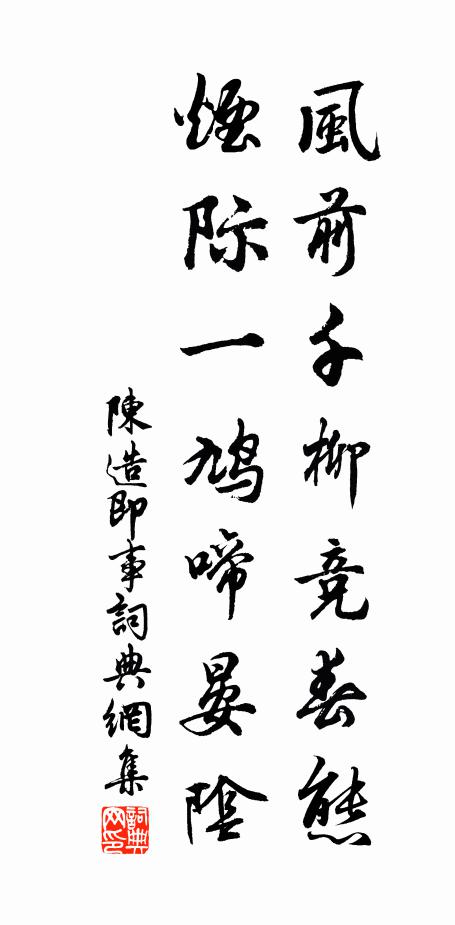 風前千柳競春態
煙際一鳩啼晏陰
陳造即事詞典網集
詞典网印